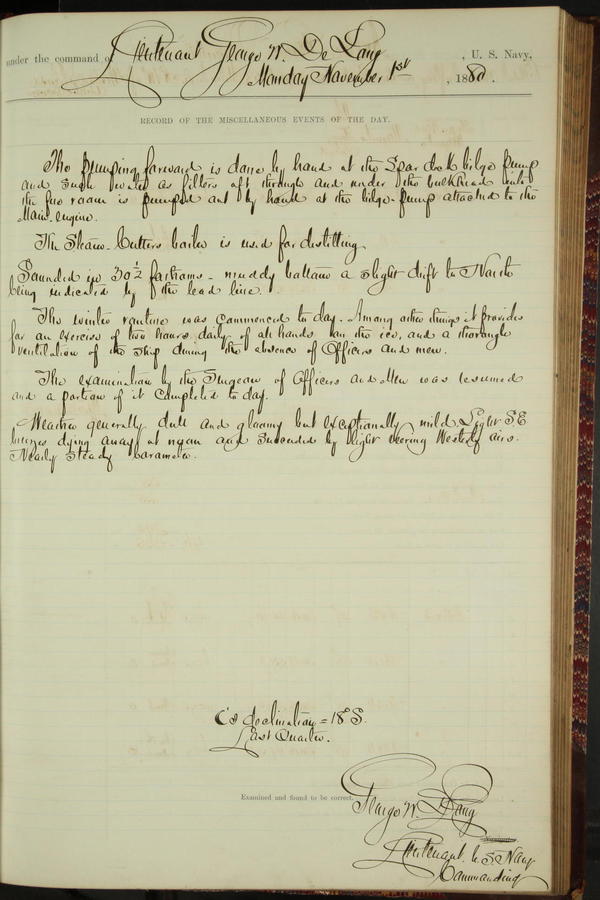 under the command of Lieutenant George W. De Long, U. S. Navy,
Monday November 1st, 1880.
RECORD OF THE MISCELLANEOUS EVENTS OF THE DAY.
The pumping forward is done by hand at the Spar deck bilge pump
and such water as filters aft through and under the bulkhead into
the fire room is pumped out by hand at the bilge-pump attached to the
Main engine.
The Steam-Cutters boiler is used for distilling.
Sounded in 30 1/2 fathoms - muddy bottom a slight drift to North
being indicated by the lead line.
The winter routine was commenced to day. Among other things it provides
for an exercise of two hours daily of all hands on the ice, and a thorough
ventilation of the ship during the absence of Officers and men.
The examination by the Surgeon of Officers and Men was resumed
and a portion of it completed to day.
Weather generally dull and gloomy but exceptionally mild. Light S.E.
breezes dying away at noon and succeeded by light veering Westerly airs.
Nearly steady barometer.
☾'s declination = 18° S.
Last Quarter.
Examined and found to be correct.
George W. De Long
Lieutenant U. S. Navy
Commanding